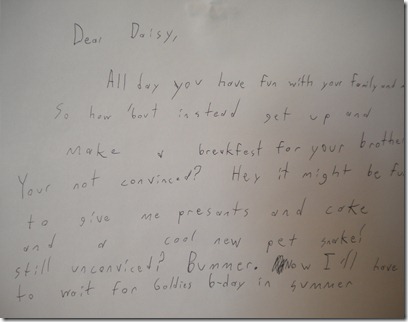 Dear Daisy,
All day you have fun with your family and
So how 'bout instead get up and
make a breakfest for your brother
Your not convinced? Hey it might be fu
to give me presants and cake
and a cool new pet snake!
still unconviced? Bummer. Now I'll have
to wait for Goldies b-day in summer